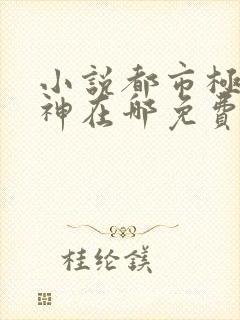 小説都市極
神在哪免費
桂纶鎂